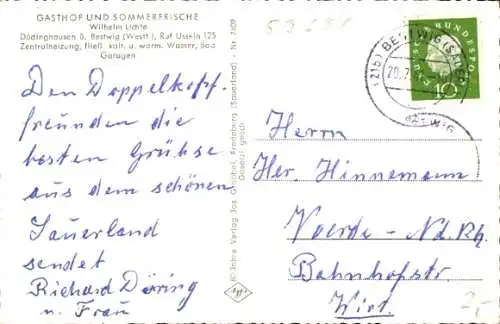 GASTHOF UND SOMMERFRISCHE
Wilhelm Lichte
Dödinghausen ü. Bestwig (Westf.), Ruf Usseln 125
Zentralheizung, fließ. kalt. u. warm. Wasser, Bad
Garagen
Den Doppelkopf-
freunden die
besten Grühse
aus dem schönen
Sauerland
sendet
Richard Döring
u. Frau
Jahre Verlag Jos. Grobbel, Fredeburg (Sauerland) - Nr.
Gesetzl. gesch.
(21b) BESTWIG
BESTWIG
DEUTSCHE BUNDESPOST
10
Herrn
Her. Hinnemann
Voerde - Nd. Rh.
Bahnhofstr.
Wirt.
2,-